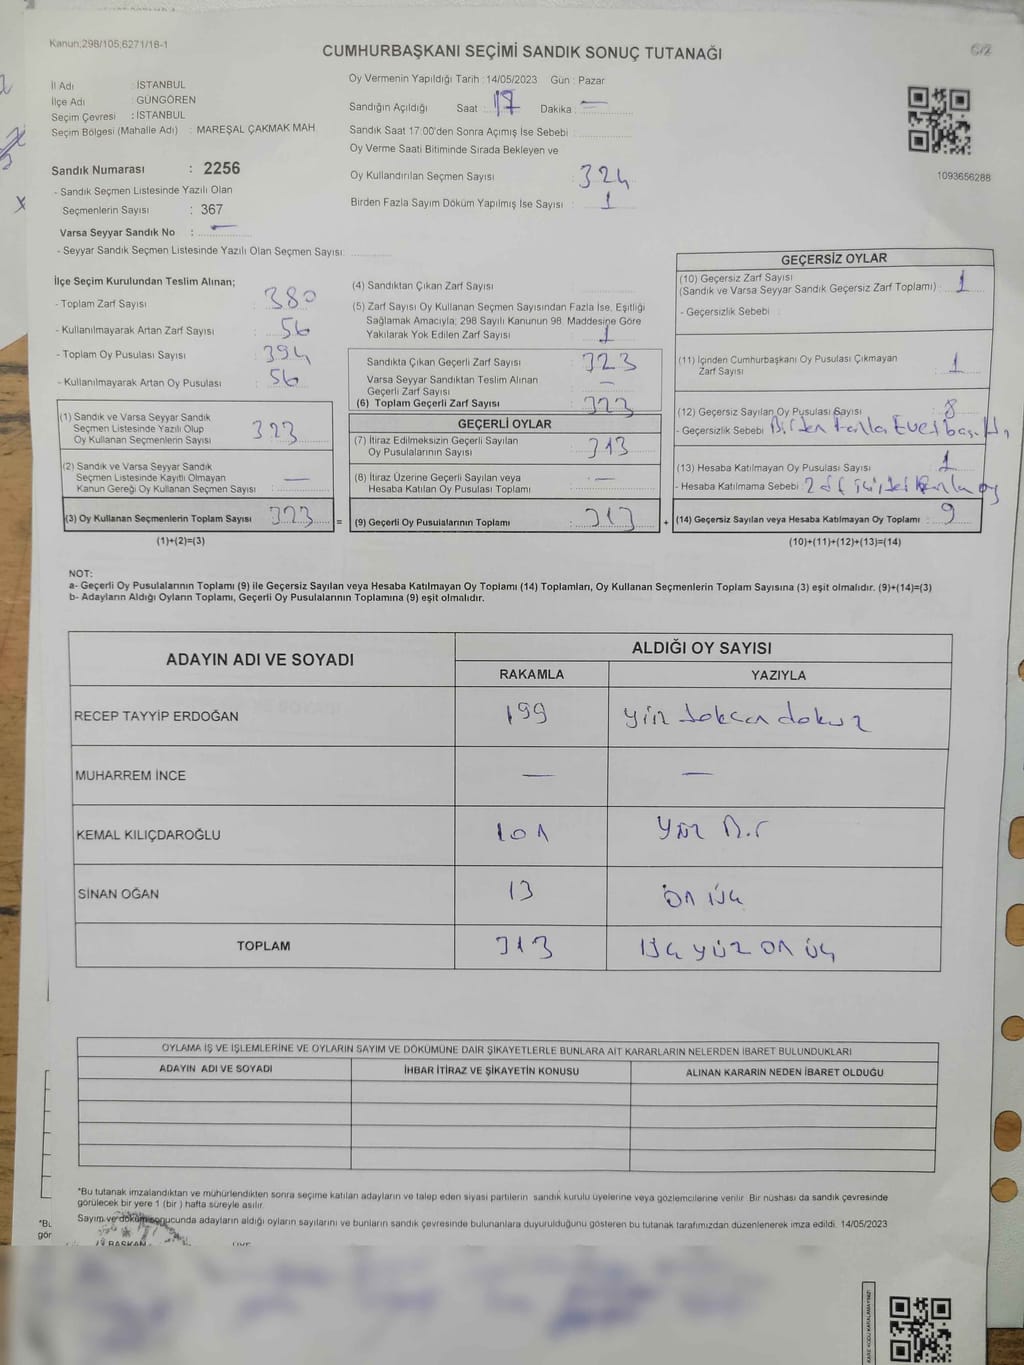 Kanun;298/105;6271/18-1
CUMHURBAŞKANI SEÇİMİ SANDIK SONUÇ TUTANAĞI
6/2
İl Adı : İSTANBUL
İlçe Adı : GÜNGÖREN
Seçim Çevresi : İSTANBUL
Seçim Bölgesi (Mahalle Adı) : MAREŞAL ÇAKMAK MAH
Sandık Numarası : 2256
- Sandık Seçmen Listesinde Yazılı Olan
Seçmenlerin Sayısı : 367
Varsa Seyyar Sandık No : —
- Seyyar Sandık Seçmen Listesinde Yazılı Olan Seçmen Sayısı:
Oy Vermenin Yapıldığı Tarih : 14/05/2023 Gün : Pazar
Sandığın Açıldığı Saat : 17 Dakika : —
Sandık Saat 17:00'den Sonra Açımış İse Sebebi :
Oy Verme Saati Bitiminde Sırada Bekleyen ve
Oy Kullandırılan Seçmen Sayısı : 324
Birden Fazla Sayım Döküm Yapılmış İse Sayısı : 1
1093656288
İlçe Seçim Kurulundan Teslim Alınan;
- Toplam Zarf Sayısı : 380
- Kullanılmayarak Artan Zarf Sayısı : 56
- Toplam Oy Pusulası Sayısı : 394
- Kullanılmayarak Artan Oy Pusulası : 56
(1) Sandık ve Varsa Seyyar Sandık
Seçmen Listesinde Yazılı Olup
Oy Kullanan Seçmenlerin Sayısı : 323
(2) Sandık ve Varsa Seyyar Sandık
Seçmen Listesinde Kayıtlı Olmayan
Kanun Gereği Oy Kullanan Seçmen Sayısı : —
(3) Oy Kullanan Seçmenlerin Toplam Sayısı : 323
(1)+(2)=(3)
(4) Sandıktan Çıkan Zarf Sayısı :
(5) Zarf Sayısı Oy Kullanan Seçmen Sayısından Fazla İse, Eşitliği
Sağlamak Amacıyla; 298 Sayılı Kanunun 98. Maddesine Göre
Yakılarak Yok Edilen Zarf Sayısı : 1
Sandıkta Çıkan Geçerli Zarf Sayısı : 323
Varsa Seyyar Sandıktan Teslim Alınan
Geçerli Zarf Sayısı : —
(6) Toplam Geçerli Zarf Sayısı : 323
GEÇERLİ OYLAR
(7) İtiraz Edilmeksizin Geçerli Sayılan
Oy Pusulalarının Sayısı : 313
(8) İtiraz Üzerine Geçerli Sayılan veya
Hesaba Katılan Oy Pusulası Toplamı : —
= (9) Geçerli Oy Pusulalarının Toplamı : 313
GEÇERSİZ OYLAR
(10) Geçersiz Zarf Sayısı
(Sandık ve Varsa Seyyar Sandık Geçersiz Zarf Toplamı) : 1
- Geçersizlik Sebebi :
(11) İçinden Cumhurbaşkanı Oy Pusulası Çıkmayan
Zarf Sayısı : 1
(12) Geçersiz Sayılan Oy Pusulası Sayısı : 8
- Geçersizlik Sebebi : Birden Fazla Evet
(13) Hesaba Katılmayan Oy Pusulası Sayısı : 1
- Hesaba Katılmama Sebebi : 2
+ (14) Geçersiz Sayılan veya Hesaba Katılmayan Oy Toplamı : 9
(10)+(11)+(12)+(13)=(14)
NOT:
a- Geçerli Oy Pusulalarının Toplamı (9) ile Geçersiz Sayılan veya Hesaba Katılmayan Oy Toplamı (14) Toplamları, Oy Kullanan Seçmenlerin Toplam Sayısına (3) eşit olmalıdır. (9)+(14)=(3)
b- Adayların Aldığı Oyların Toplamı, Geçerli Oy Pusulalarının Toplamına (9) eşit olmalıdır.
ADAYIN ADI VE SOYADI ALDIĞI OY SAYISI
RAKAMLA YAZIYLA
RECEP TAYYİP ERDOĞAN 199 yüz doksan dokuz
MUHARREM İNCE — —
KEMAL KILIÇDAROĞLU 101 yüz Bir
SİNAN OĞAN 13 on üç
TOPLAM 313 üç yüz on üç
OYLAMA İŞ VE İŞLEMLERİNE VE OYLARIN SAYIM VE DÖKÜMÜNE DAİR ŞİKAYETLERLE BUNLARA AİT KARARLARIN NELERDEN İBARET BULUNDUKLARI
ADAYIN ADI VE SOYADI İHBAR İTİRAZ VE ŞİKAYETİN KONUSU ALINAN KARARIN NEDEN İBARET OLDUĞU
*Bu tutanak imzalandıktan ve mühürlendikten sonra seçime katılan adayların ve talep eden siyasi partilerin sandık kurulu üyelerine veya gözlemcilerine verilir. Bir nüshası da sandık çevresinde
görülecek bir yere 1 (bir ) hafta süreyle asılır.
Sayım ve döküm sonucunda adayların aldığı oyların sayılarını ve bunların sandık çevresinde bulunanlara duyurulduğunu gösteren bu tutanak tarafımızdan düzenlenerek imza edildi. 14/05/2023
BAŞKAN ÜYE